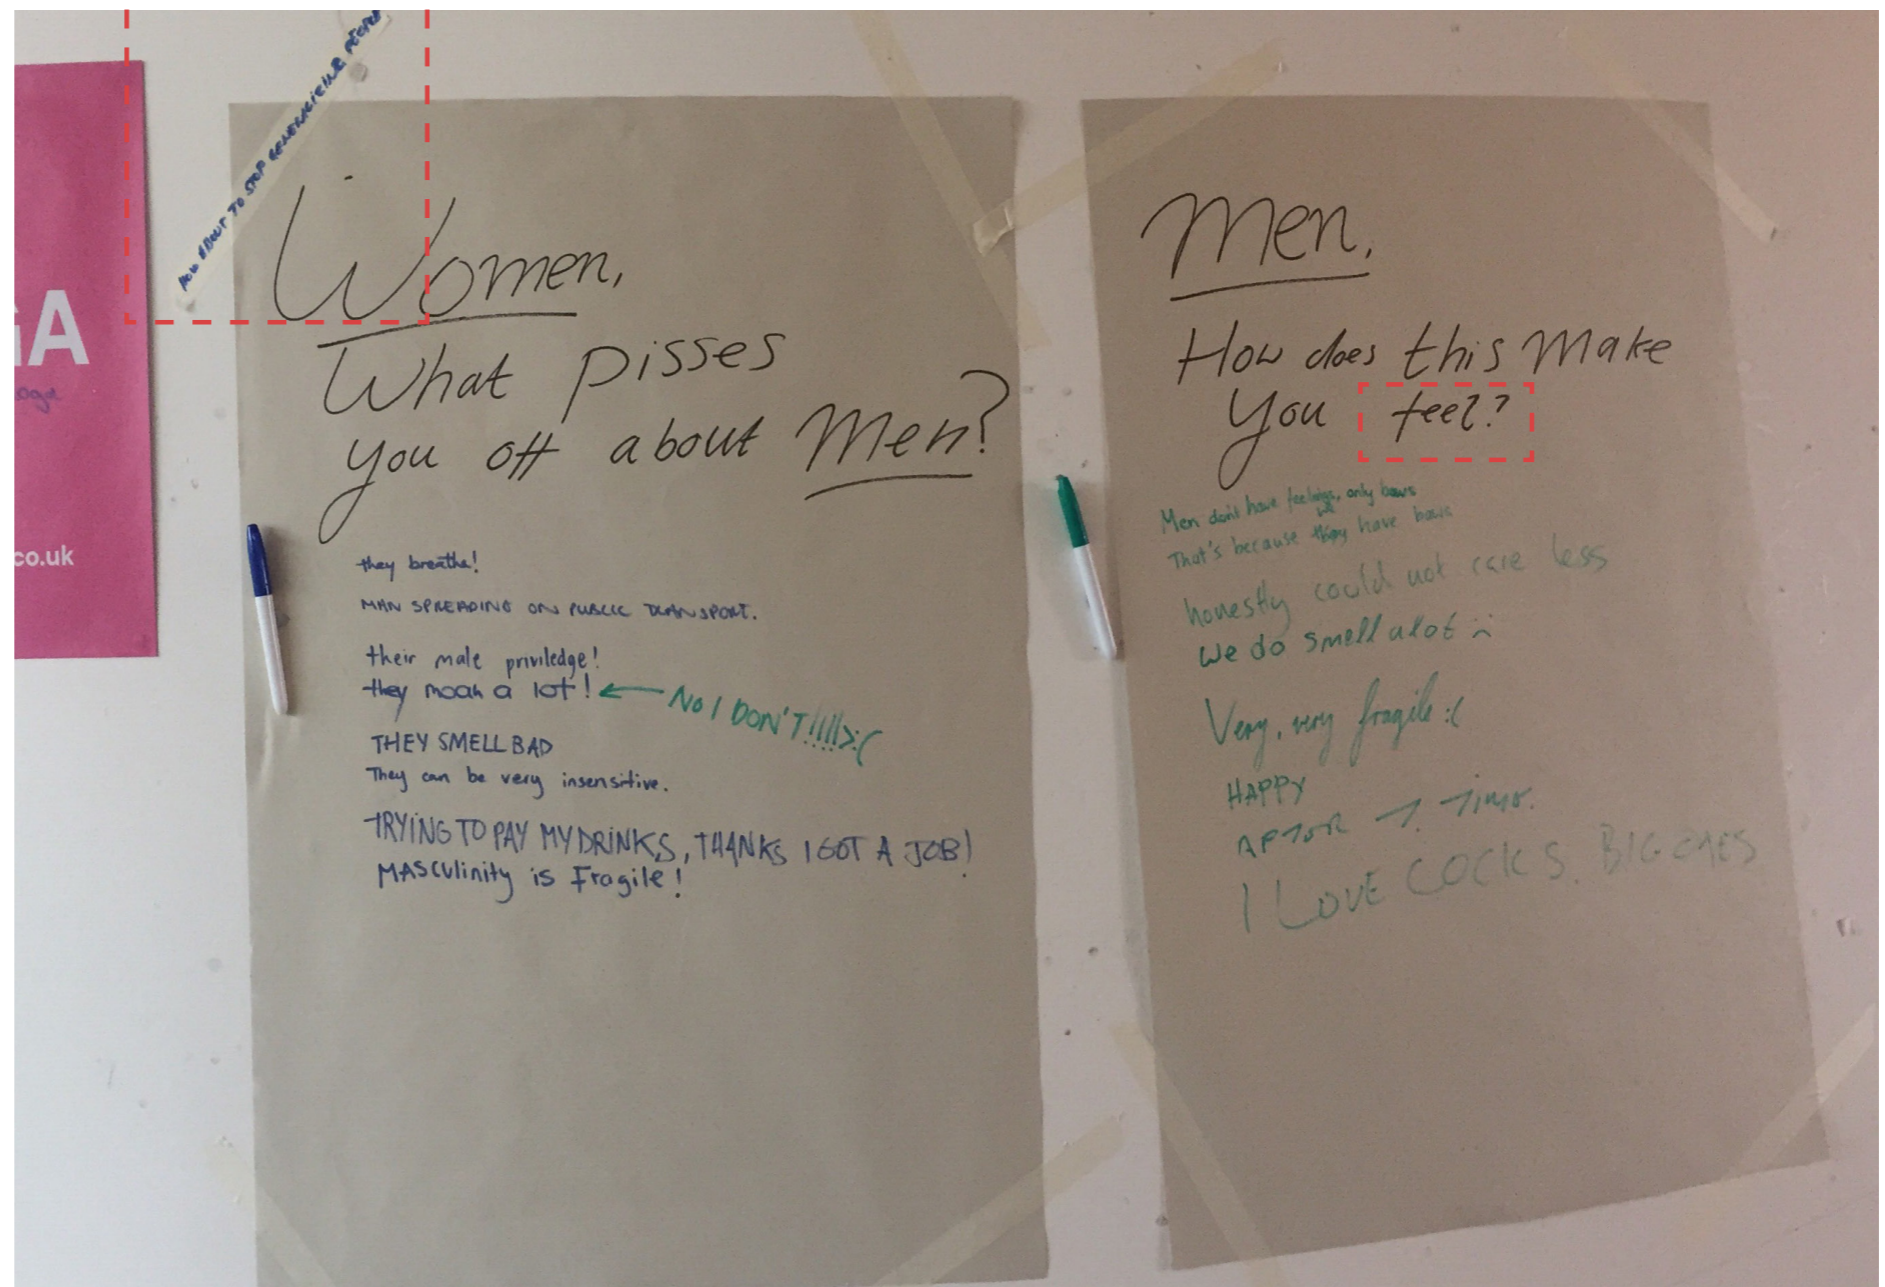 HOW ABOUT TO STOP GENERALISING PEOPLE
GA
oga
co.uk
Women,
What pisses
you off about Men?
they breathe!
MAN SPREADING ON PUBLIC TRANSPORT.
their male priviledge!
they moan a lot!
NO I DON'T!!!!>:(
THEY SMELL BAD
They can be very insensitive.
TRYING TO PAY MY DRINKS, THANKS I GOT A JOB!
MASculinity is Fragile!
Men,
How does this Make
You feel?
Men don't have feelings, only baws
That's because they we have baws
honestly could not care less
We do smell alot :(
Very, very fragile :(
HAPPY
AFTER T. Time.
I LOVE COCKS. BIG ONES